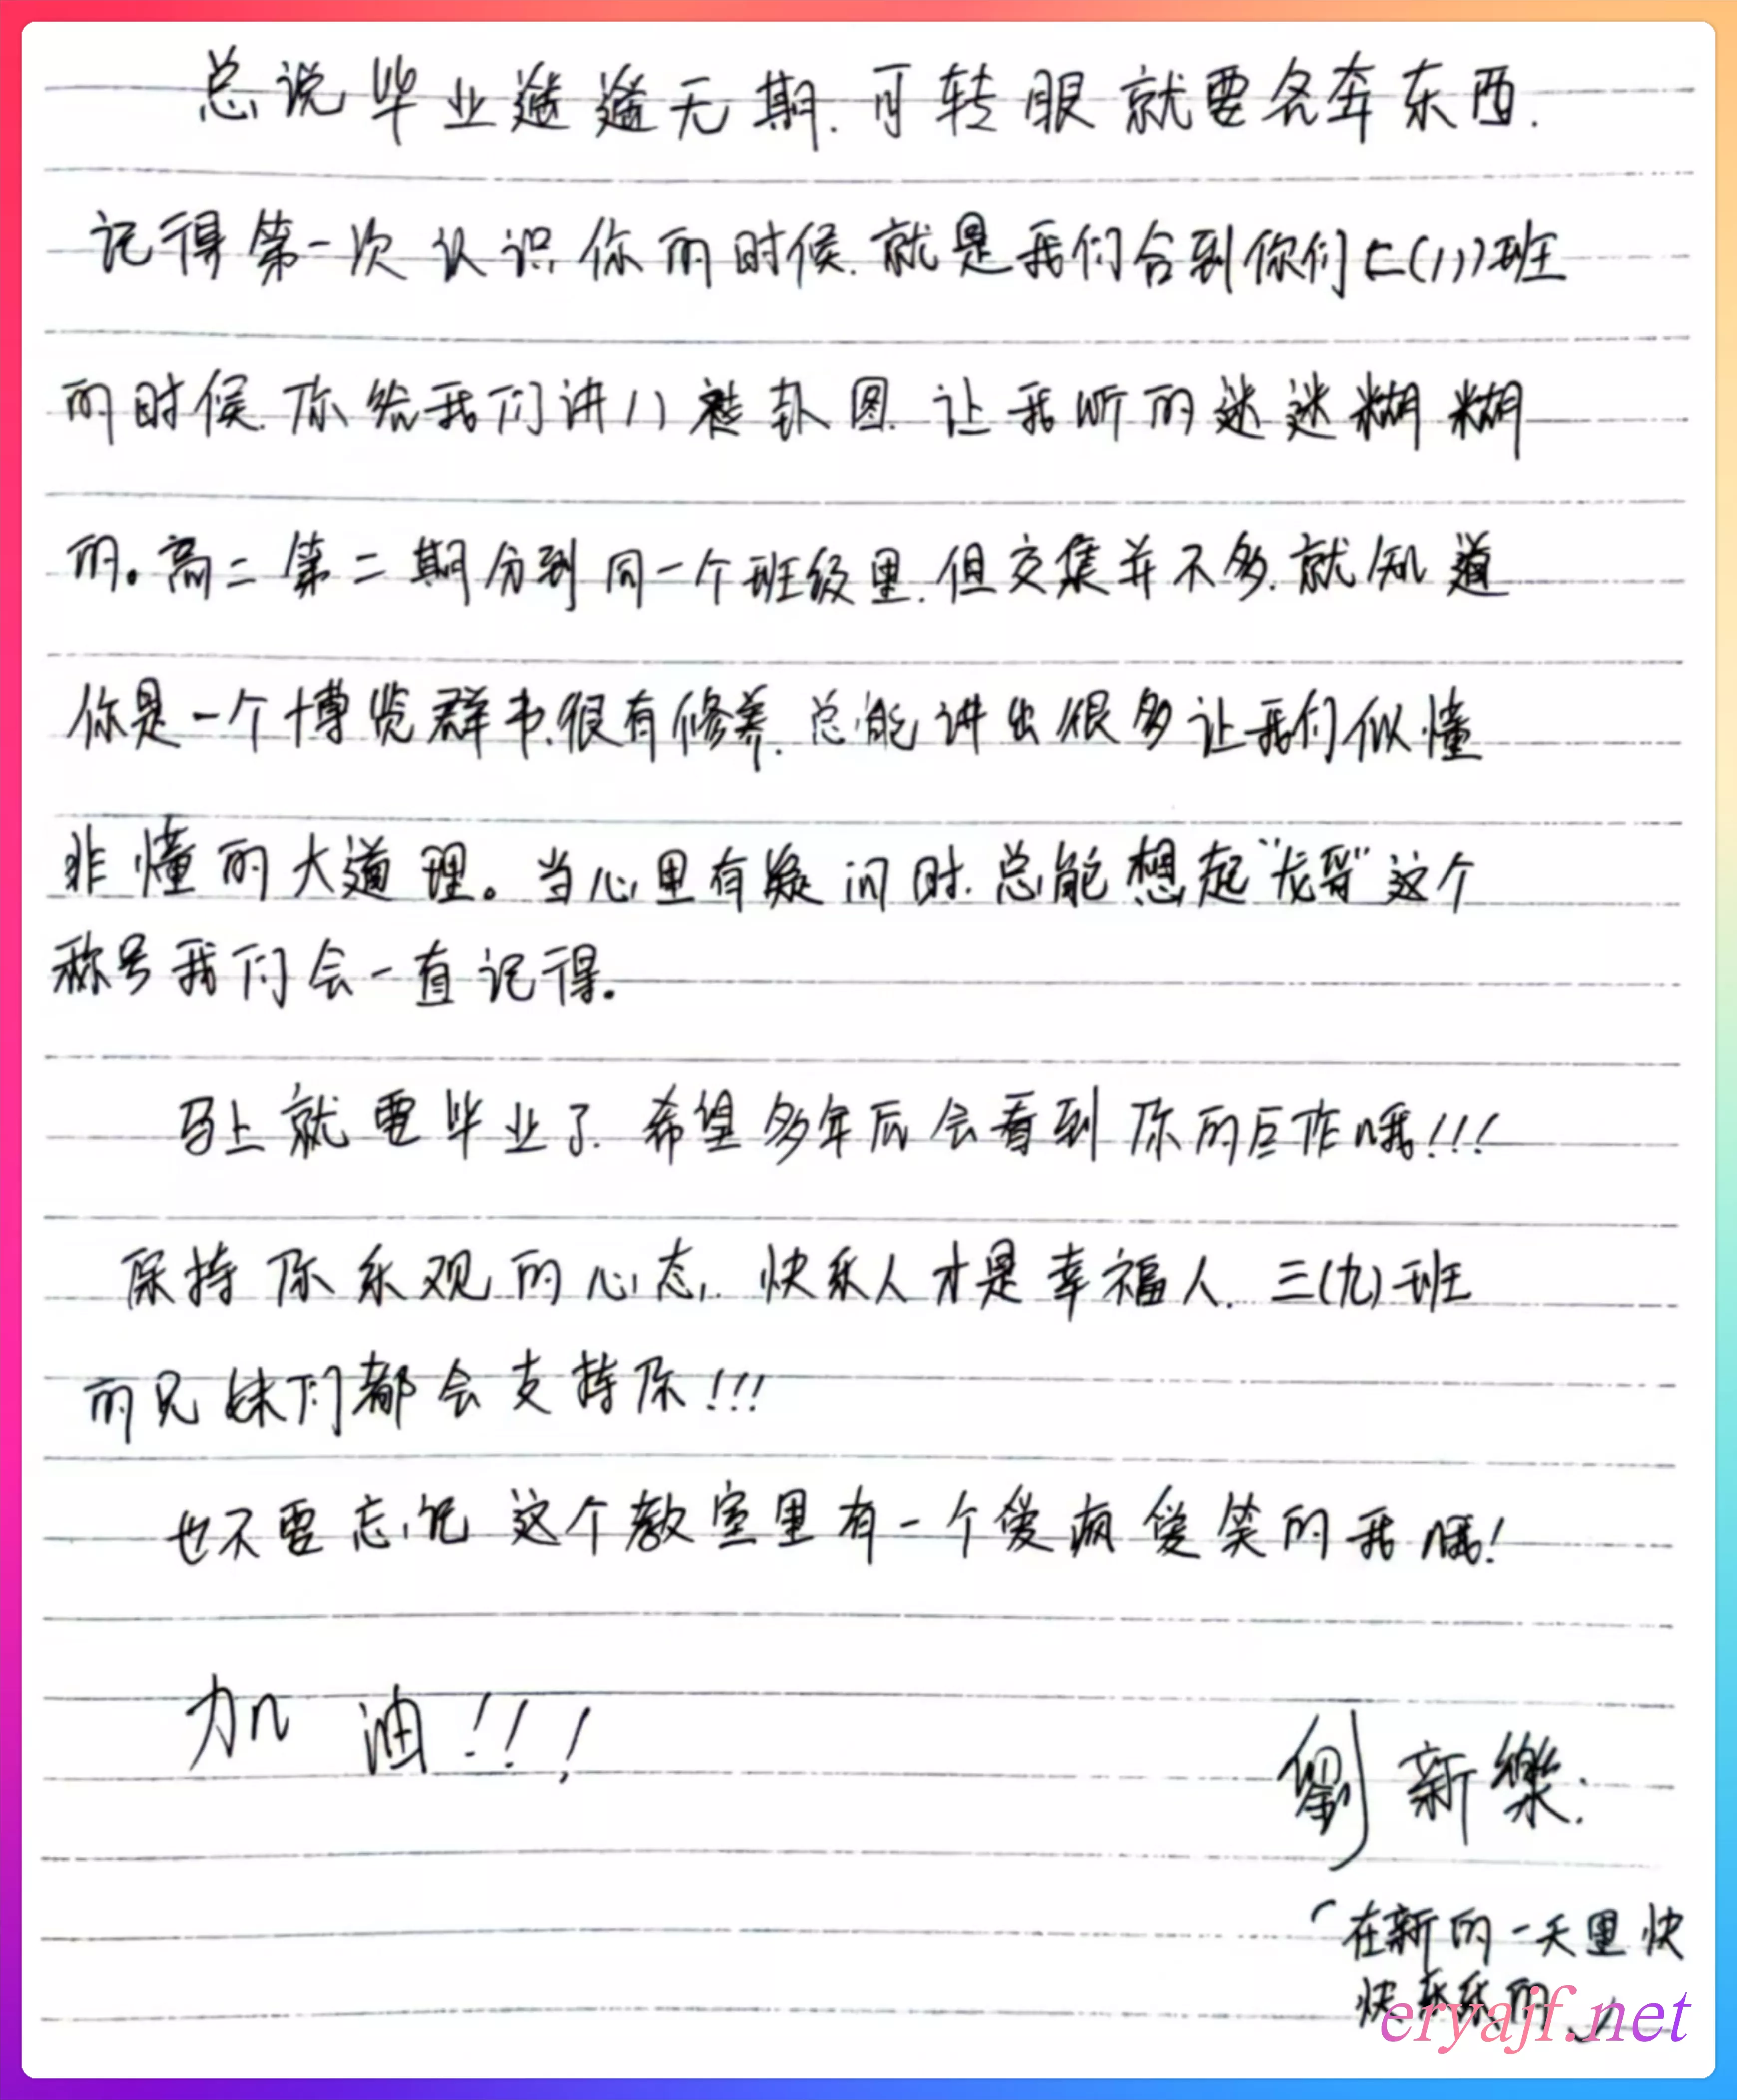 总说毕业遥遥无期.可转眼就要各奔东西.
记得第一次认识你的时候.就是我们合到你们仁(1)班
的时候.你给我们讲八卦图.让我听的迷迷糊糊
的。高二第二期分到同一个班级里.但交集并不多.就知道
你是一个博览群书.很有修养.总能讲出很多让我们似懂
非懂的大道理。当心里有疑问时.总能想起“龙哥”这个
称号我们会一直记得.
马上就要毕业了.希望多年后会看到你的巨作哦!!!
保持你乐观的心态.快乐人才是幸福人.三(九)班
的兄妹们都会支持你!!!
也不要忘记这个教室里有一个爱疯爱笑的我哦!
加油!!!
劉新樂.
「在新的一天里快
快乐乐的」
eryajf.net